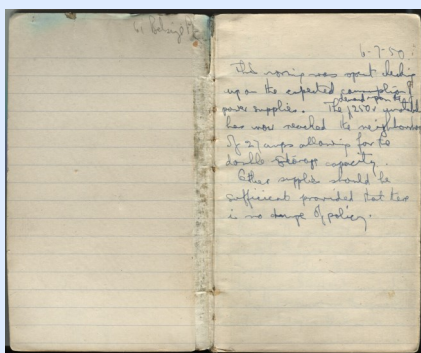 6-7-50
This morning was spent checking
up on the expected
power supplies. The 250v
has now reached the neighbourhood
of 27 amps allowing for the
double storage capacity.
Other supplies should be
sufficient provided that there
is no change of policy.